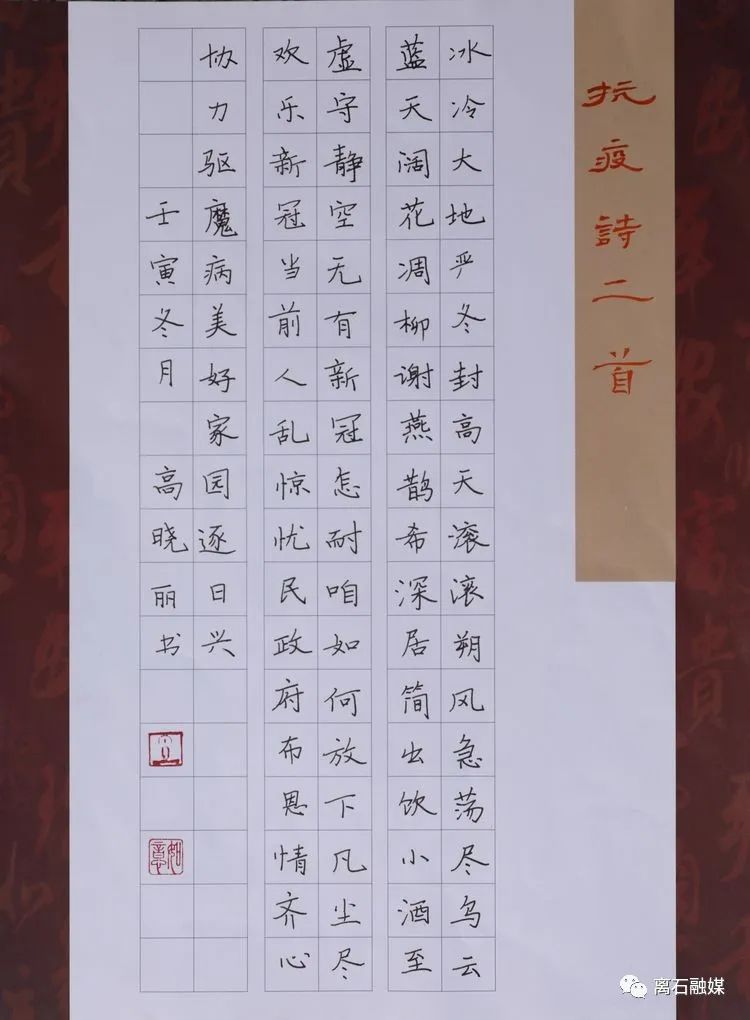 抗疫詩二首
冰冷大地严冬封高天滚滚朔风急荡尽乌云
蓝天阔花凋柳谢燕鹊希深居简出饮小酒至
虚守静空无有新冠怎耐咱如何放下凡尘尽
欢乐新冠当前人乱惊忧民政府布恩情齐心
协力驱魔病美好家园逐日兴
壬寅冬月 高晓丽书
如意
离石融媒